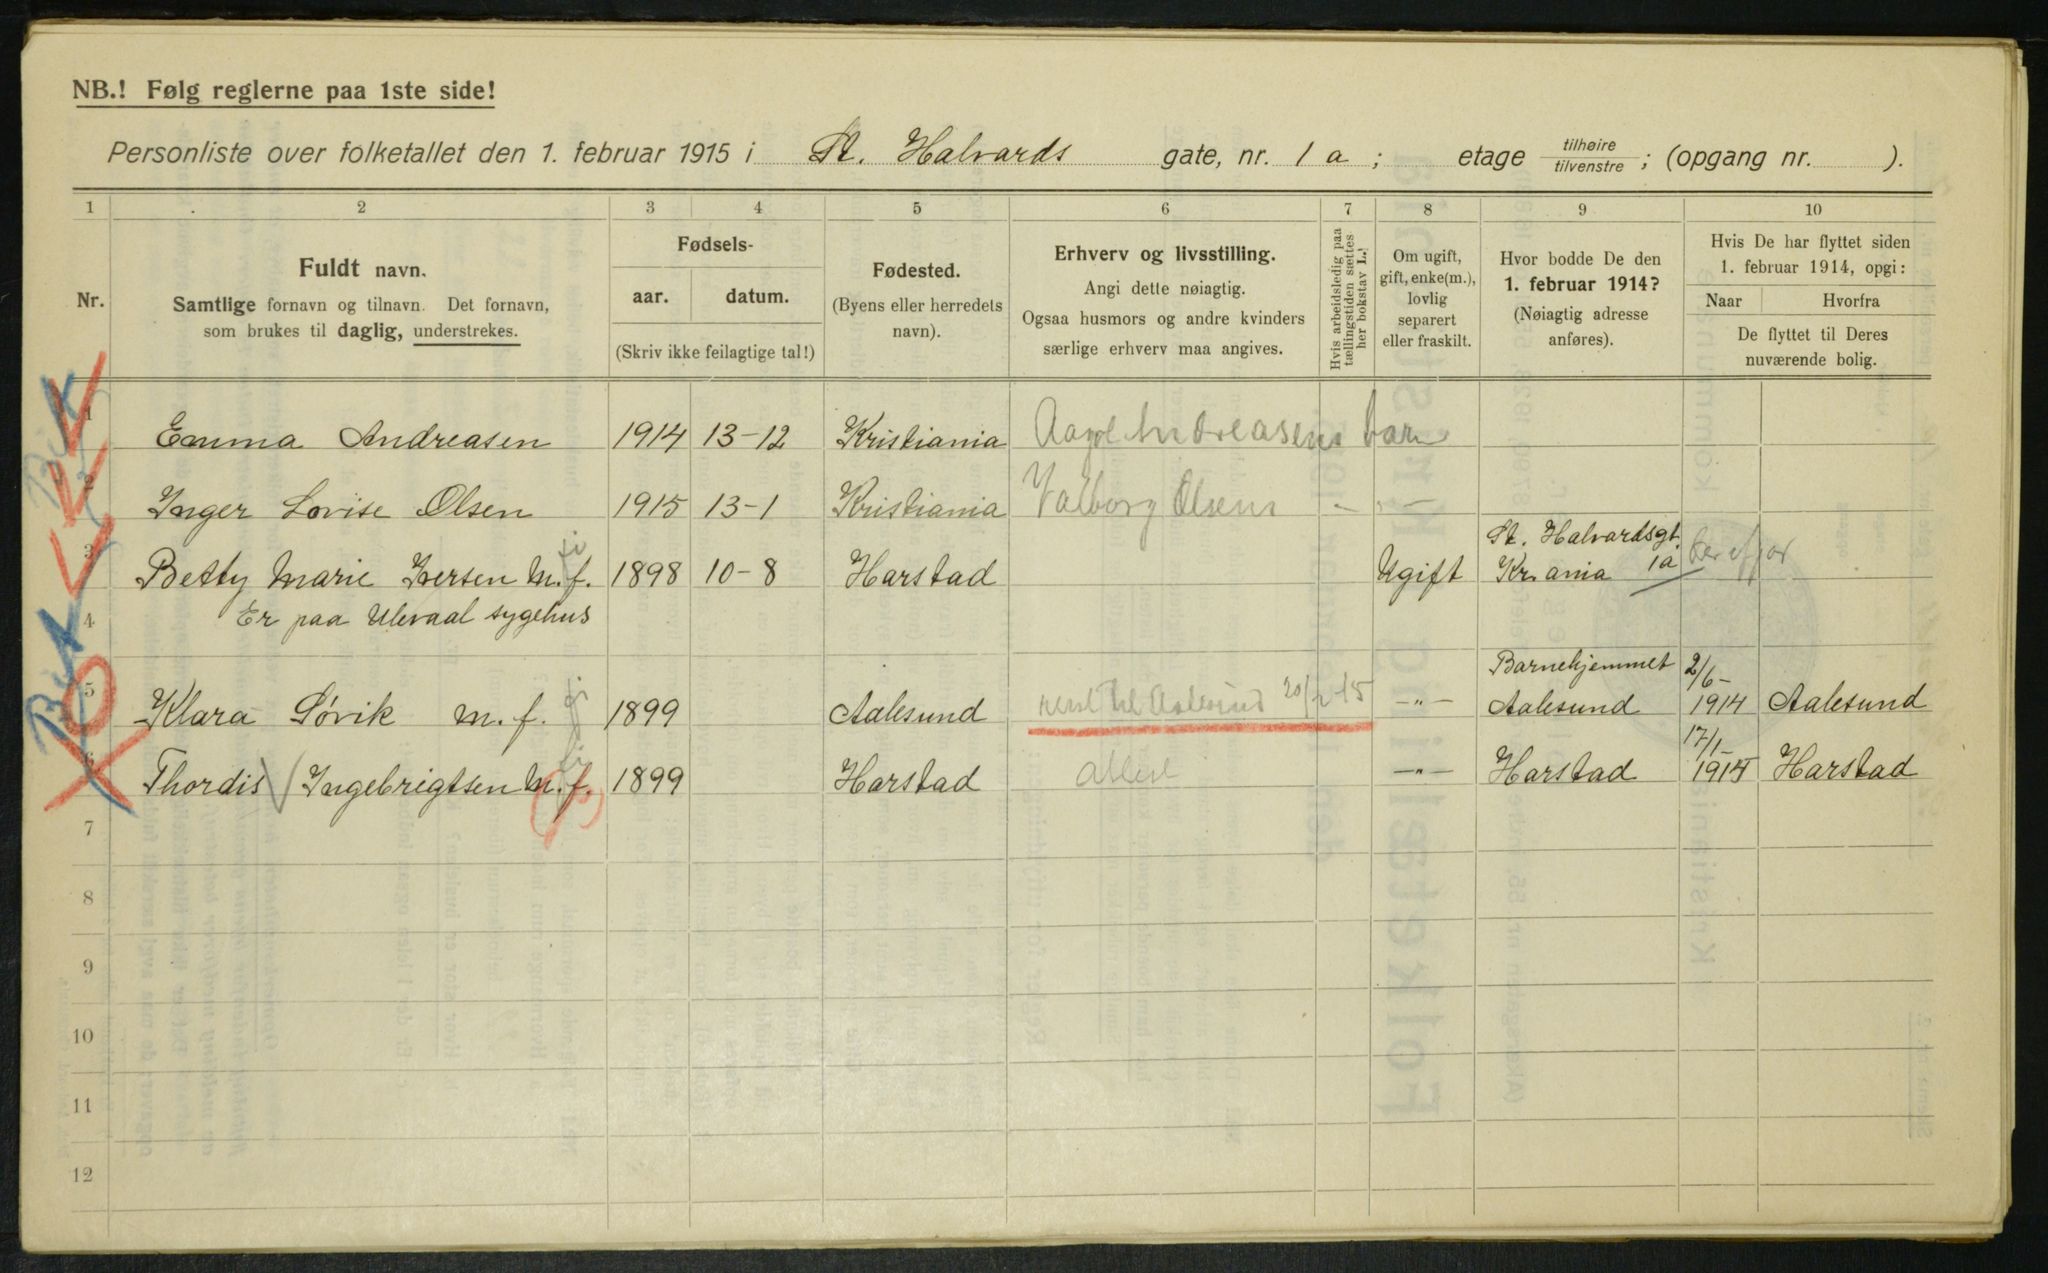 NB.! Følg reglerne paa 1ste side!
Personliste over folketallet den 1. februar 1915 i St. Halvards gate, nr. 1 a ; etage tilhøire / tilvenstre ; (opgang nr. ).
1 2 3 4 5 6 7 8 9 10
Nr.
Fuldt navn.
Samtlige fornavn og tilnavn. Det fornavn,
som brukes til daglig, understrekes.
Fødsels-
aar. datum.
(Skriv ikke feilagtige tal!)
Fødested.
(Byens eller herredets
navn).
Erhverv og livsstilling.
Angi dette nøiagtig.
Ogsaa husmors og andre kvinders
særlige erhverv maa angives.
Hvis arbeidsledig paa
tællingstiden sættes
her bokstav L.!
Om ugift,
gift, enke(m.),
lovlig
separert
eller fraskilt.
Hvor bodde De den
1. februar 1914?
(Nøiagtig adresse
anføres).
Hvis De har flyttet siden
1. februar 1914, opgi:
Naar Hvorfra
De flyttet til Deres
nuværende bolig.
1 Emma Andreasen 1914 13-12 Kristiania Aagot Andreasens barn
2 Inger Lovise Olsen 1915 13-1 Kristiania Valborg Olsens - -"-
3 Betty Marie Iversen M.f. 1898 10-8 Harstad Ugift St. Halvardsgt. 1a Kr.ania
4 Er paa Ulevaal sygehus
5 Klara Søvik m. f. 1899 Aalesund reist til Aalesund 20/2-15 -"- Barnehjemmet Aalesund 2/6-1914 Aalesund
6 Thordis Ingebrigtsen M.f. 1899 Harstad -"- Harstad 17/1-1915 Harstad
7
8
9
10
11
12